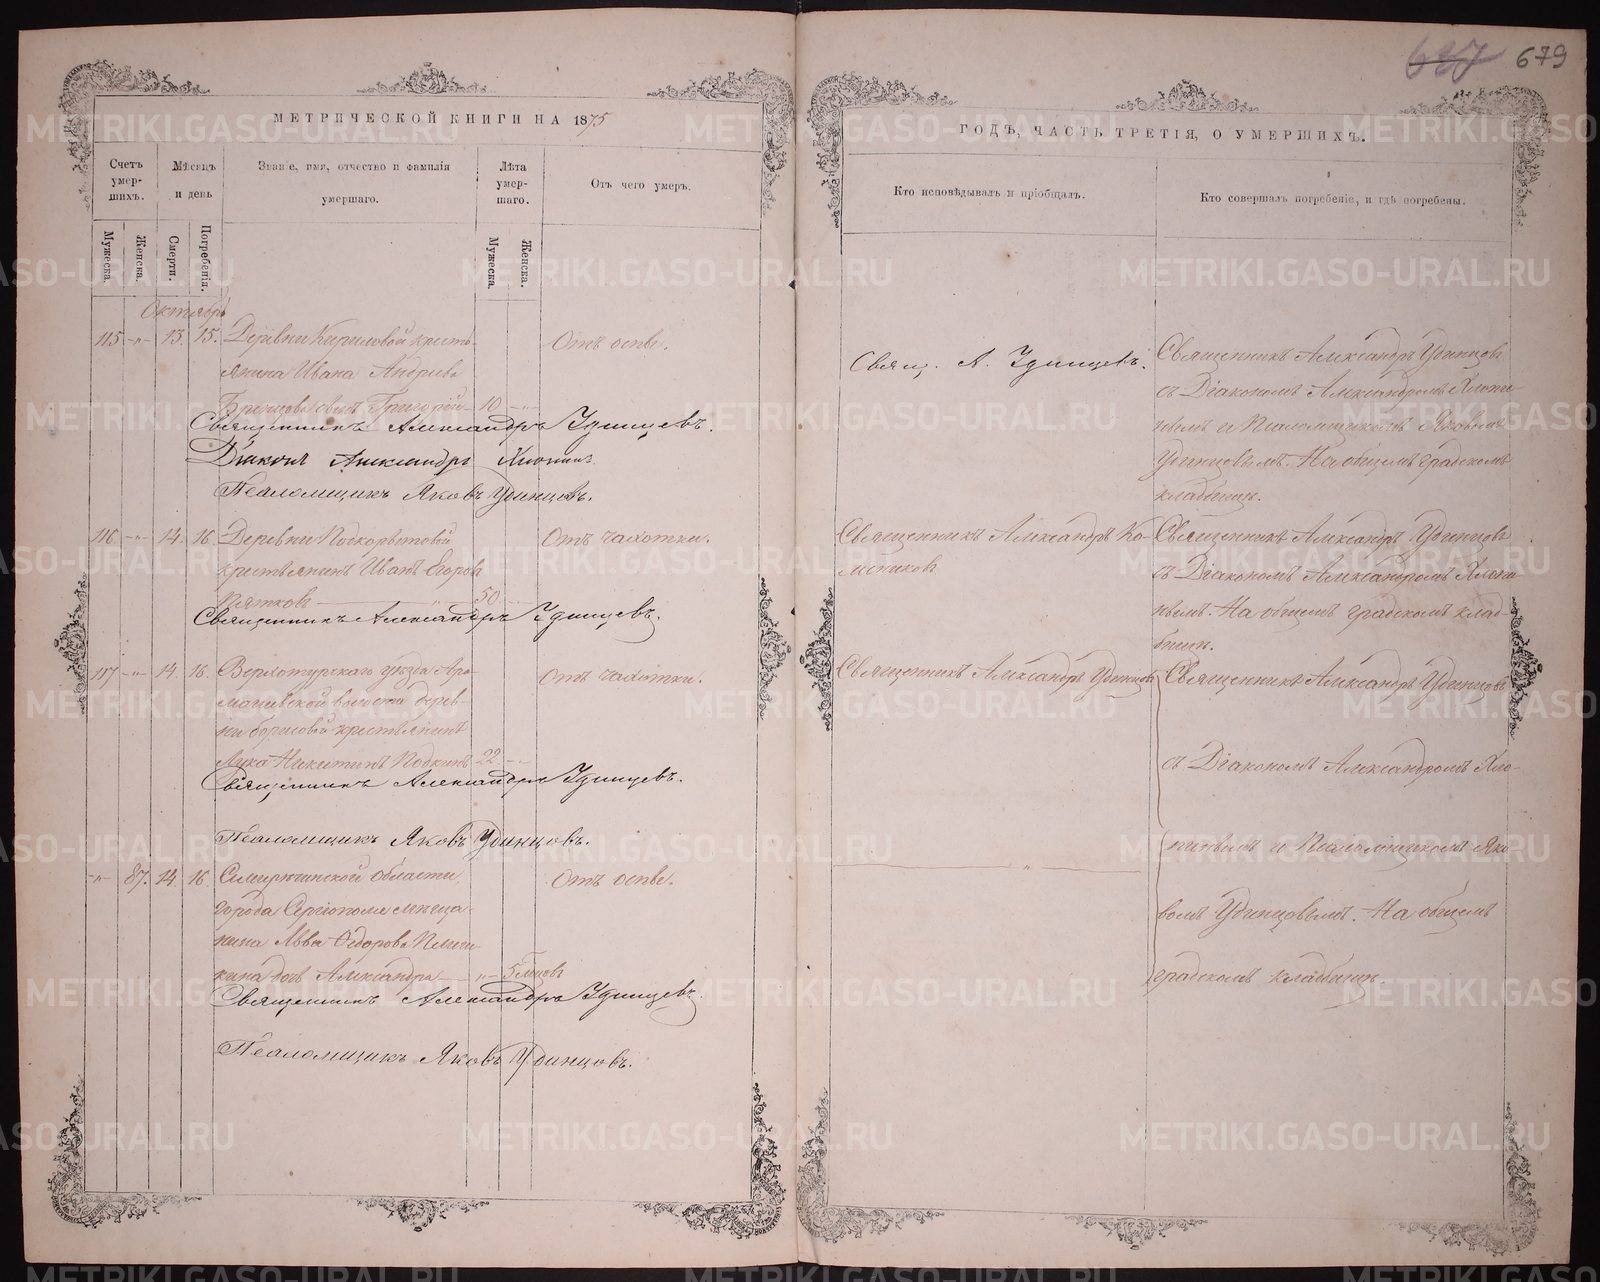 637 679
МЕТРИЧЕСКОЙ КНИГИ НА 1875
Счетъ умершихъ.
Мѣсяцъ и день
Званіе, имя, отчество и фамилія умершаго.
Лѣта умершаго.
Отъ чего умеръ.
Мужеска.
Женска.
Смерти.
Погребенія.
Мужеска.
Женска.
Октябрь
115 -„- 13. 15. Деревни Кириловой кресть-
янина Ивана Андреева
сынъ Григорій - 10 -„-
Отъ оспы.
Священникъ Александръ Удинцевъ.
Діаконъ Александръ Хлопинъ
Псаломщикъ Яковъ Удинцовъ.
116 -„- 14. 16. Деревни Подкорытовой
крестьянинъ Иванъ Егоровъ
Пятковъ 50
Отъ чахотки.
Священникъ Александръ Удинцевъ.
117 -„- 14. 16. Верхотурскаго уѣзда Ара-
машевской волости дерев-
ни Борисовой крестьянинъ
Лука Никитинъ Подкинъ 22 -„-
Отъ чахотки.
Священникъ Александръ Удинцевъ.
Псаломщикъ Яковъ Удинцовъ.
-„- 87. 14. 16. Семирѣчинской области
города Сергіополя мѣща-
нина Льва Ѳедорова
дочь Александра -„- 5 мѣсцовъ
Отъ оспы.
Священникъ Александръ Удинцевъ.
Псаломщикъ Яковъ Удинцовъ.
ГОДЪ, ЧАСТЬ ТРЕТІЯ, О УМЕРШИХЪ.
Кто исповѣдывалъ и пріобщалъ.
Кто совершалъ погребеніе, и гдѣ погребены.
Свящ. А. Удинцевъ.
Священникъ Александръ Удинцовъ
съ Діакономъ Александромъ Хлопи-
нымъ и Псаломщикомъ Яковомъ
Удинцовымъ. На общемъ градскомъ
кладбищѣ.
Священникъ Александръ Ко-
лесниковъ
Священникъ Александръ Удинцовъ
съ Діакономъ Александромъ Хлопи-
нымъ. На общемъ градскомъ клад-
бищѣ.
Священникъ Александръ Удинцовъ
Священникъ Александръ Удинцовъ
съ Діакономъ Александромъ Хло-
пинымъ и Псаломщикомъ Яко-
вомъ Удинцовымъ. На общемъ
градскомъ кладбищѣ.
METRIKI.GASO-URAL.RU